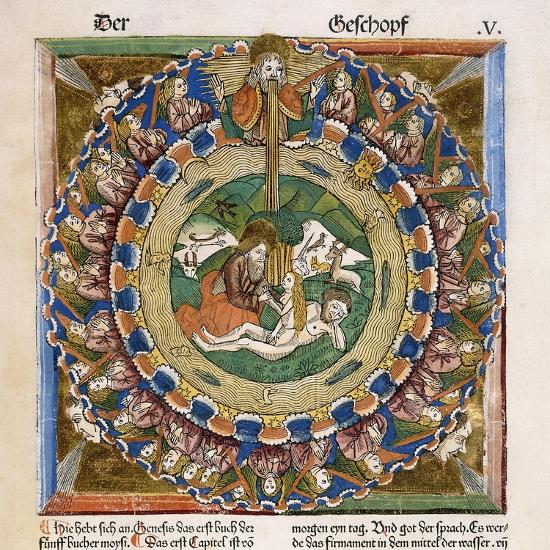 Der Geschopf .V.
Hie hebt sich an. Genesis das erst buch der
fünff bucher moysi. Das erst Capitel ist võ
morgen eyn tag. Vnd got der sprach. Es wer-
de das firmament in dem mittel der wasser. vñ